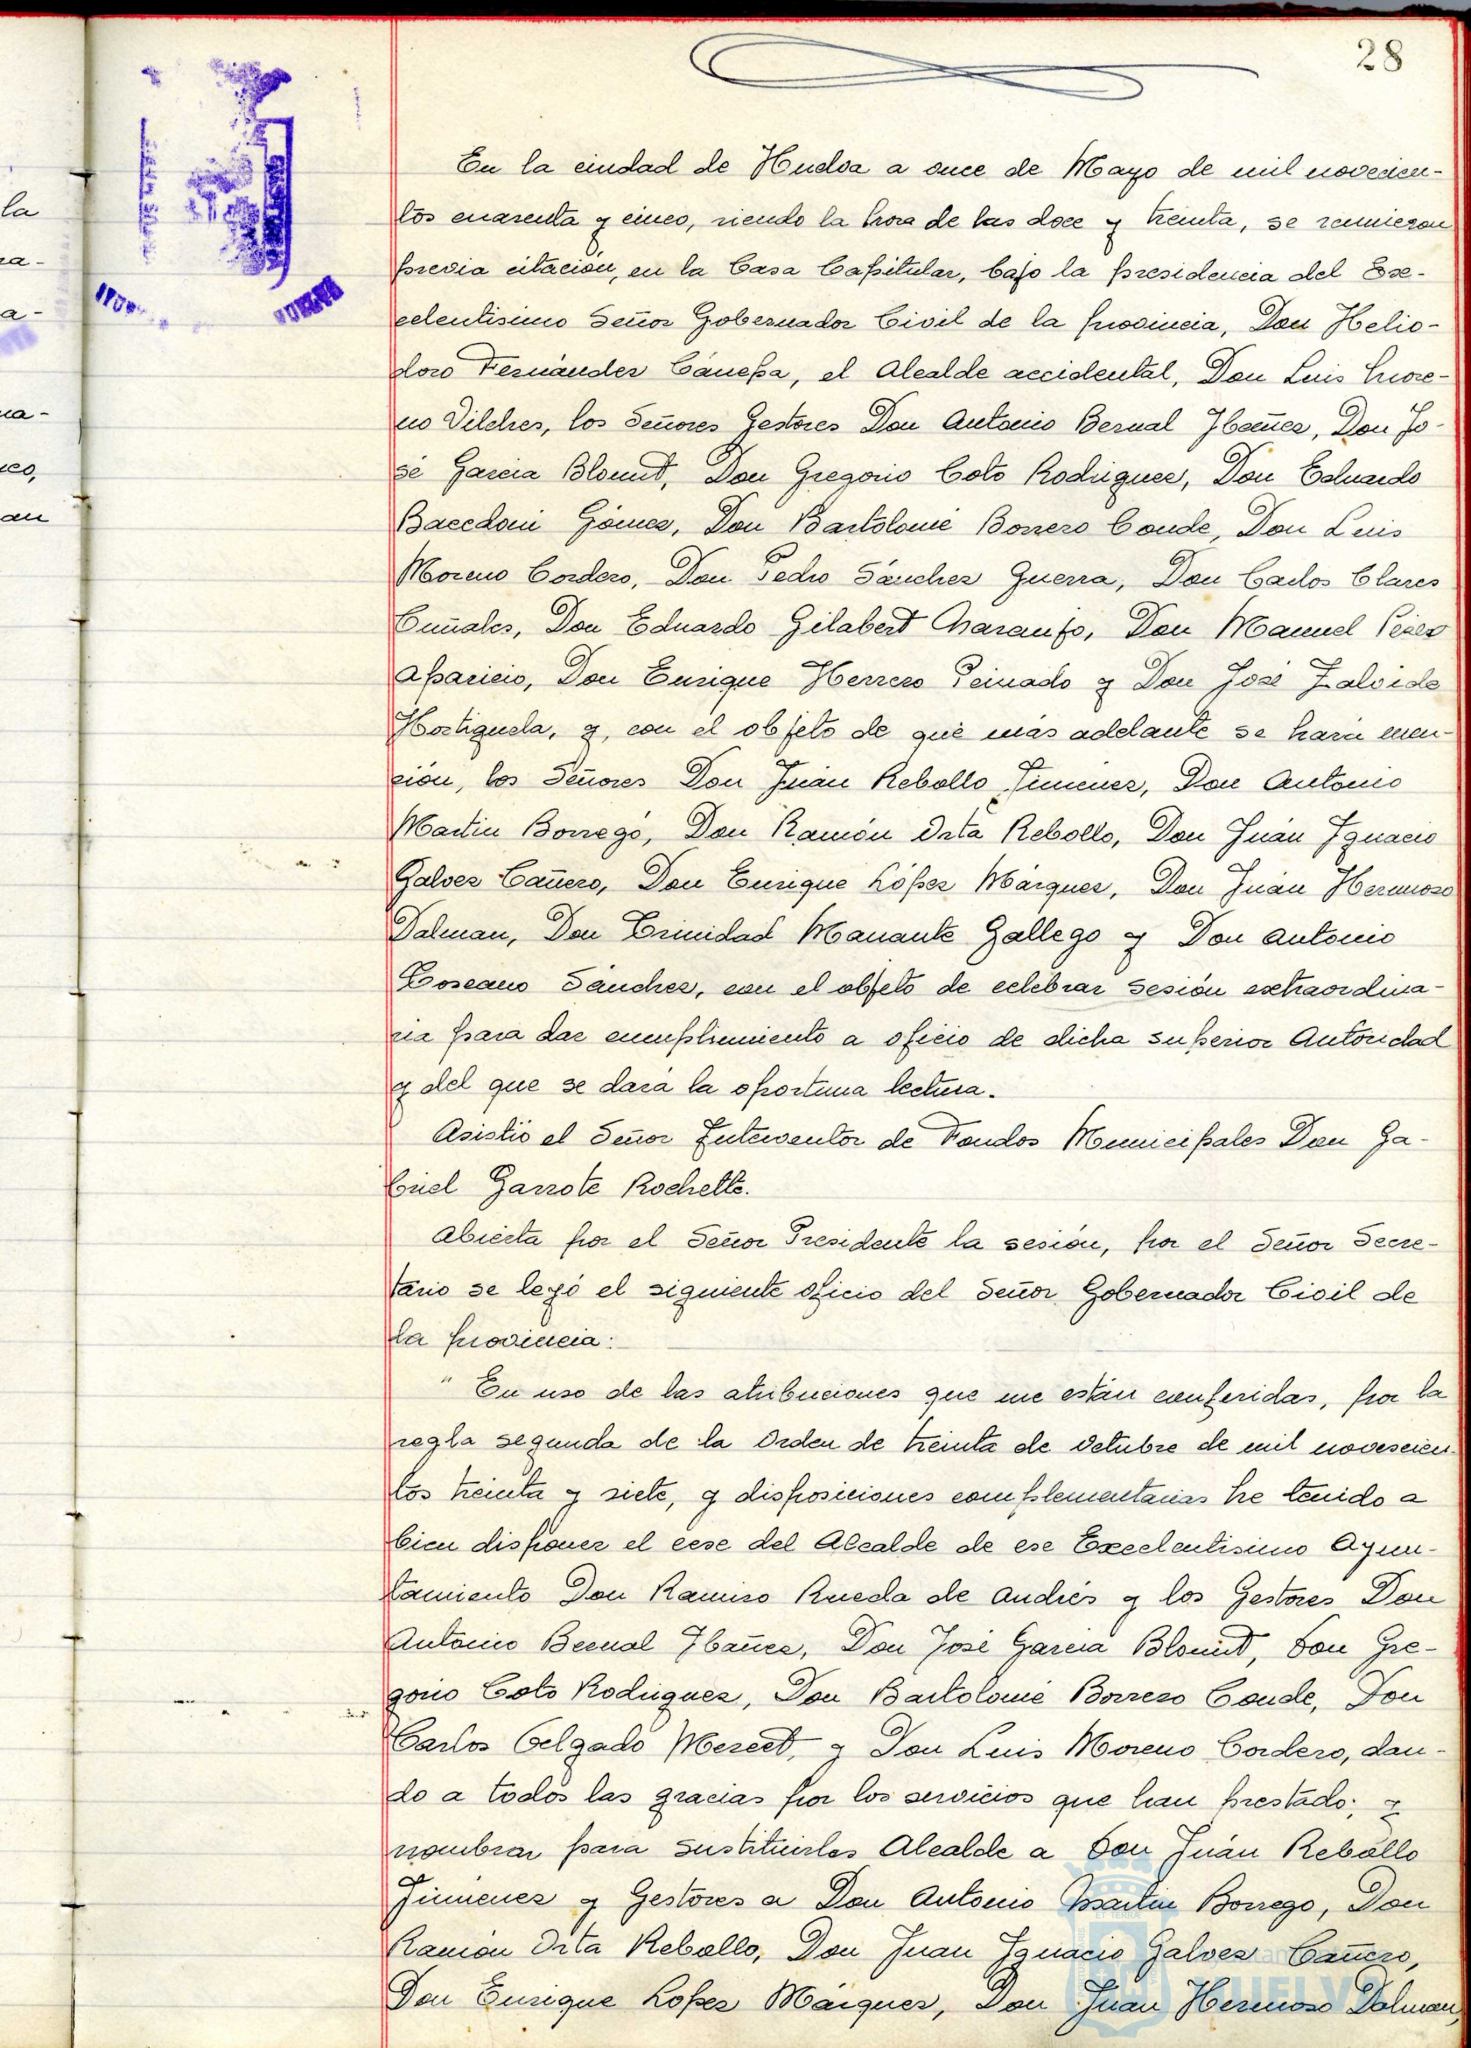 28
En la ciudad de Huelva a once de Mayo de mil novecien-
tos cuarenta y cinco, siendo la hora de las doce y treinta, se reunieron
previa citación, en la Casa Capitular, bajo la presidencia del Exc-
celentisimo Señor Gobernador Civil de la provincia, Don Helio-
doro Fernández Cánepa, el Alcalde accidental, Don Luis More-
no Vilches, los Señores Gestores Don Antonio Bernal Ibañez, Don Jo-
sé Garcia Blount, Don Gregorio Coto Rodriguez, Don Eduardo
Gómez, Don Bartolomé Borrero Conde, Don Luis
Moreno Cordero, Don Pedro Sánchez Guerra, Don Carlos Clares
Don Eduardo Gilabert Naranjo, Don Manuel Pérez
Aparicio, Don Enrique Herrero Peinado y Don José Zalvide
Hortiguela, y, con el objeto de que más adelante se hará men-
ción, los Señores Don Juán Rebollo Jimenez, Don Antonio
Martin Borrego, Don Ramón Orta Rebollo, Don Juán Ignacio
Galvez Cañero, Don Enrique López Márquez, Don Juán Hermoso
Dalman, Don Trinidad Manante Gallego y Don Antonio
Toscano Sánchez, con el objeto de celebrar sesión extraordina-
ria para dar cumplimiento a oficio de dicha superior Autoridad
y del que se dará la oportuna lectura.
Asistió el Señor Interventor de Fondos Municipales Don Ga-
briel Garrote Rochette.
Abierta por el Señor Presidente la sesión, por el Señor Secre-
tario se leyó el siguiente oficio del Señor Gobernador Civil de
la provincia:
" En uso de las atribuciones que me están conferidas, por la
regla segunda de la Orden de treinta de Octubre de mil novescien-
tos treinta y siete, y disposiciones complementarias he tenido a
bien disponer el cese del Alcalde de ese Excelentisimo Ayun-
tamiento Don Ramiro Rueda de Andrés y los Gestores Don
Antonio Bernal Ibañez, Don José Garcia Blount, Don Gre-
gorio Coto Rodriguez, Don Bartolomé Borrero Conde, Don
Carlos Delgado y Don Luis Moreno Cordero, dan-
do a todos las gracias por los servicios que han prestado; y
nombrar para sustituirles Alcalde a Don Juán Rebollo
Jimenez y Gestores a Don Antonio Martin Borrego, Don
Ramón Orta Rebollo, Don Juan Ignacio Galvez Cañero,
Don Enrique López Márquez, Don Juan Hermoso Dalman,